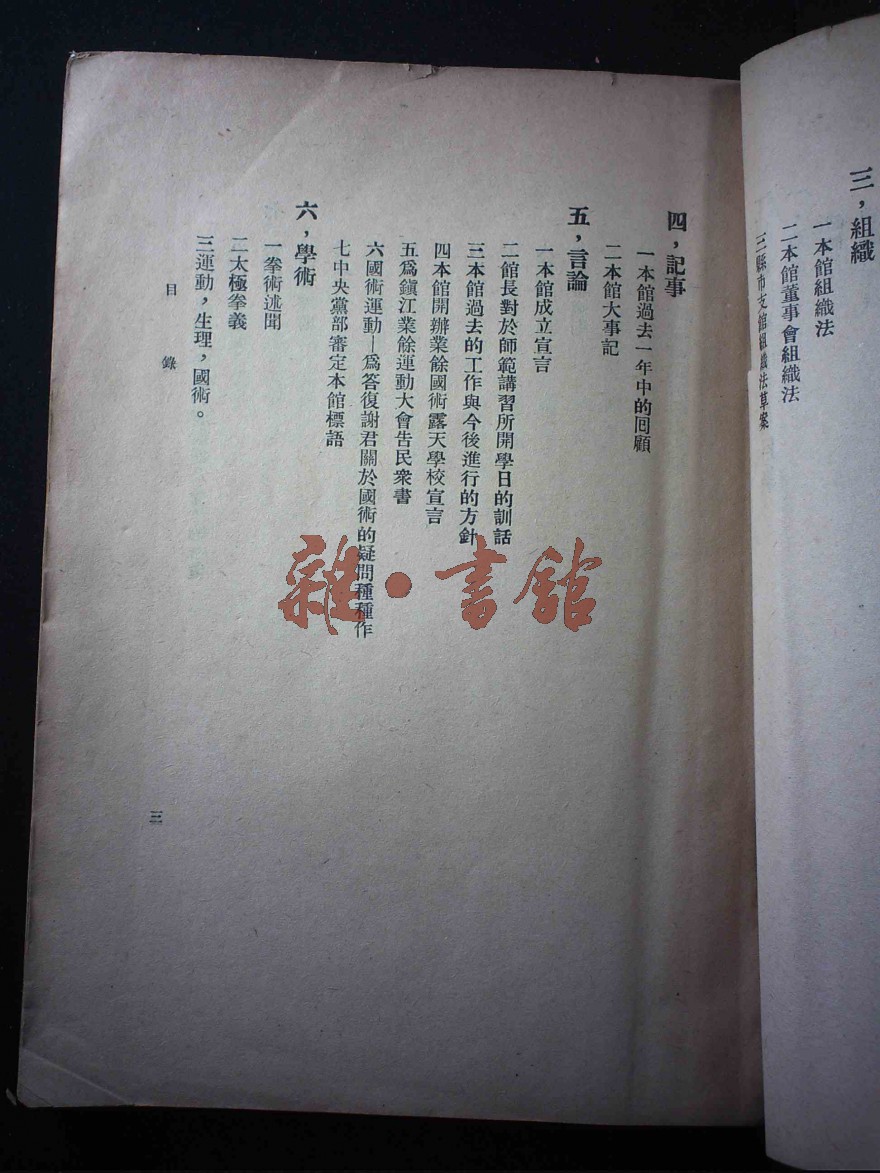 三，組織
一本館組織法
二本館董事會組織法
三縣市支館組織法草案
四，記事
一本館過去一年中的回顧
二本館大事記
五，言論
一本館成立宣言
二館長對於師範講習所開學日的訓話
三本館過去的工作與今後進行的方針
四本館開辦業餘國術露天學校宣言
五爲鎭江業餘運動大會告民衆書
六國術運動—爲答復謝君關於國術的疑問種種作
七中央黨部審定本館標語
六，學術
一拳術述聞
二太極拳義
三運動，生理，國術。
目錄
三
雜·書館